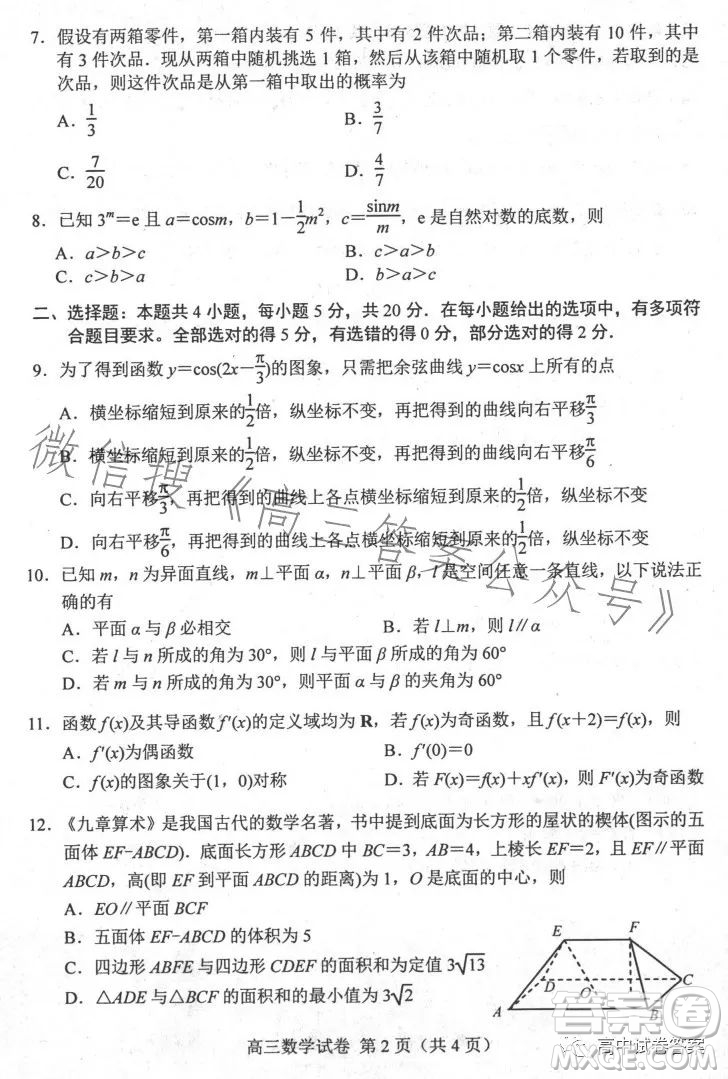 7．假设有两箱零件，第一箱内装有 5 件，其中有 2 件次品；第二箱内装有 10 件，其中
有 3 件次品．现从两箱中随机挑选 1 箱，然后从该箱中随机取 1 个零件，若取到的是
次品，则这件次品是从第一箱中取出的概率为
A．1/3 B．3/7
C．7/20 D．4/7
8．已知 3^m＝e 且 a＝cosm，b＝1－1/2m²，c＝sinm/m，e 是自然对数的底数，则
A．a>b>c B．c>a>b
C．c>b>a D．b>a>c
二、选择题：本题共 4 小题，每小题 5 分，共 20 分．在每小题给出的选项中，有多项符
合题目要求。全部选对的得 5 分，有选错的得 0 分，部分选对的得 2 分．
9．为了得到函数 y＝cos(2x－π/3)的图象，只需把余弦曲线 y＝cosx 上所有的点
A．横坐标缩短到原来的1/2倍，纵坐标不变，再把得到的曲线向右平移π/3
B．横坐标缩短到原来的1/2倍，纵坐标不变，再把得到的曲线向右平移π/6
C．向右平移π/3，再把得到的曲线上各点横坐标缩短到原来的1/2倍，纵坐标不变
D．向右平移π/6，再把得到的曲线上各点横坐标缩短到原来的1/2倍，纵坐标不变
10．已知 m，n 为异面直线，m⊥平面 α，n⊥平面 β，l 是空间任意一条直线，以下说法正
确的有
A．平面 α 与 β 必相交 B．若 l⊥m，则 l∥α
C．若 l 与 n 所成的角为 30°，则 l 与平面 β 所成的角为 60°
D．若 m 与 n 所成的角为 30°，则平面 α 与 β 的夹角为 60°
11．函数 f(x)及其导函数 f′(x)的定义域均为 R，若 f(x)为奇函数，且 f(x＋2)＝f(x)，则
A．f′(x)为偶函数 B．f′(0)＝0
C．f(x)的图象关于(1，0)对称 D．若 F(x)＝f(x)＋xf′(x)，则 F(x)为奇函数
12．《九章算术》是我国古代的数学名著，书中提到底面为长方形的屋状的楔体(图示的五
面体 EF-ABCD)．底面长方形 ABCD 中 BC＝3，AB＝4，上棱长 EF＝2，且 EF∥平面
ABCD，高(即 EF 到平面 ABCD 的距离)为 1，O 是底面的中心，则
A．EO∥平面 BCF
B．五面体 EF-ABCD 的体积为 5
C．四边形 ABFE 与四边形 CDEF 的面积和为定值 3√13
D．△ADE 与△BCF 的面积和的最小值为 3√2
E F
D O C
A B
高三数学试卷 第 2 页（共 4 页）
微信搜《高三答案公众号》
答案圈
高中试卷答案
MXQE.COM